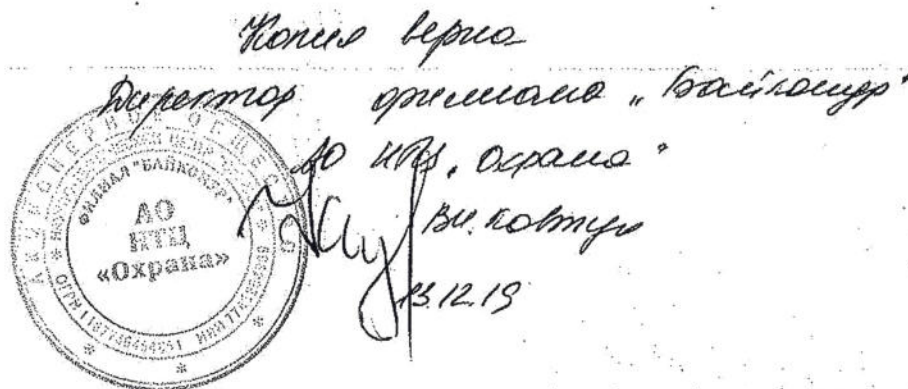 Копия верна
Директор филиала „Байконур"
АО НТЦ „Охрана"
В.И. Ковтун
13.12.19
АКЦИОНЕРНОЕ ОБЩЕС
ФИЛИАЛ "БАЙКОНУР"
АО
НТЦ
«Охрана»
ОГРН ИНН